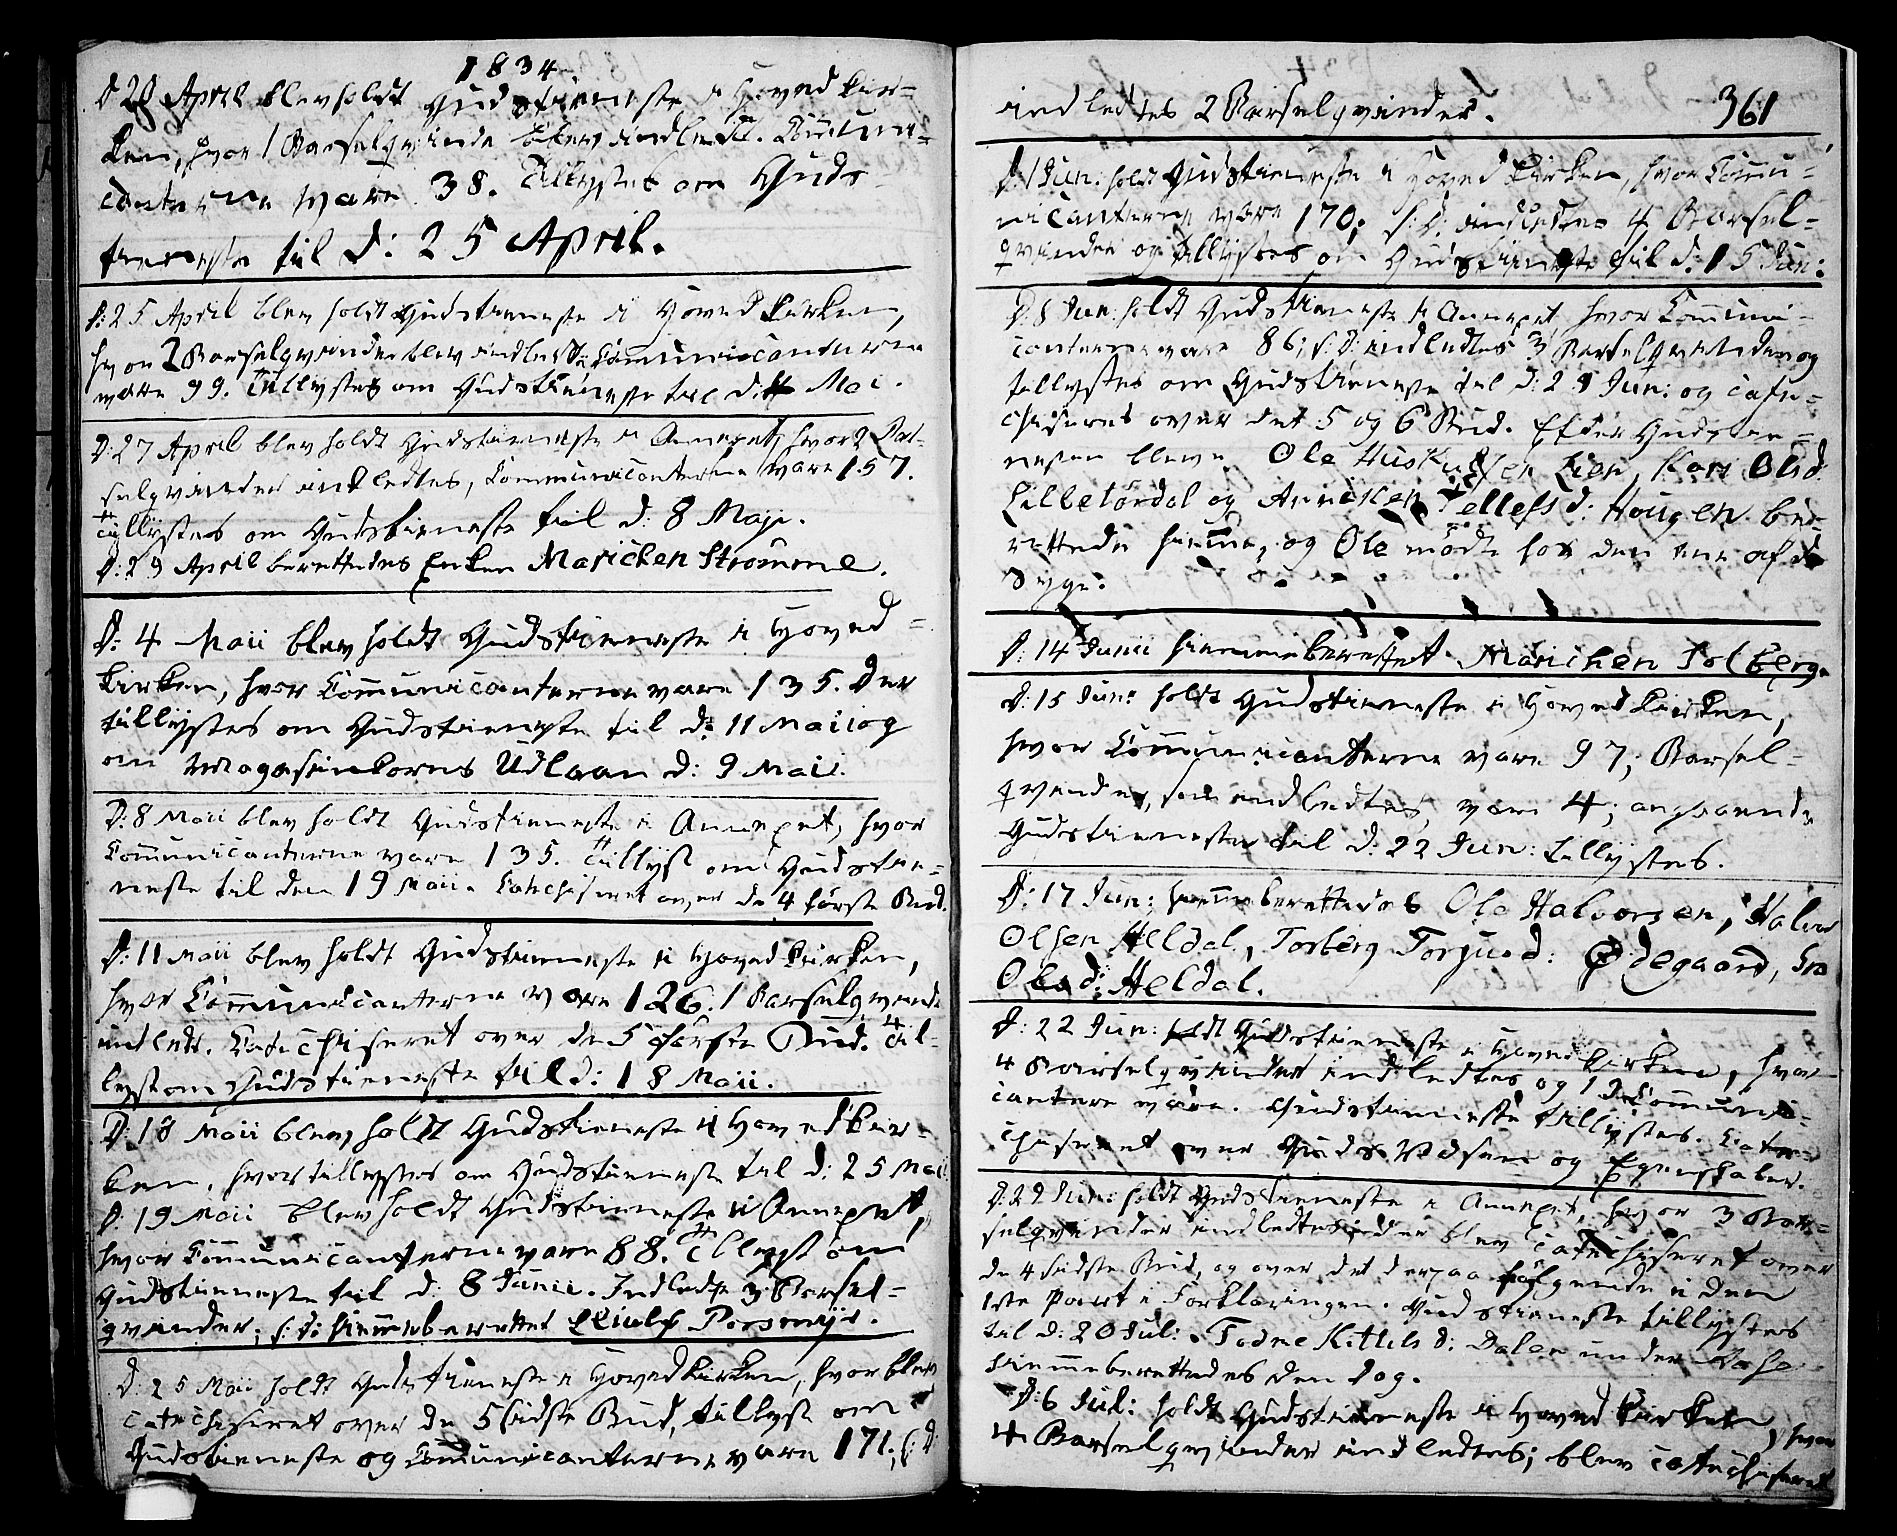 1834
D 20 April blev holdt Gudstieneste i Hovedkir-
ken, hvor 1 Barselqvinde blev indledt. Commun-
canterne vare 38. Tillystes om Guds
tieneste til d: 25 April.
D: 25 April blev holdt Gudstieneste i Hovedkirken,
hvor 2 Barselqvinder blev indledt. Communicanterne
vare 99. Tillystes om Gudstieneste til d: 4 Mai.
D: 27 April blev holdt Gudstieneste i Annexet, hvor 2 Bar-
selqvinder indledtes, Communicanterne vare 157.
Tillystes om Gudstieneste til d: 8 Maji.
D: 29 April berettedes Enken Marichen Strømme.
D: 4 Maii blev holdt Gudstieneste i Hoved-
kirken, hvor Communicanterne vare 135. Der
tillystes om Gudstieneste til d: 11 Maii og
om Magasinkorns Udlaan d: 9 Maii.
D: 8 Maii blev holdt Gudstieneste i Annexet, hvor
Communicanterne vare 135. Tillyst om Gudstie-
neste til den 19 Maii. Catechiseret over de 4 første Bud.
D: 11 Maii blev holdt Gudstieneste i Hovedkirken,
hvor Communicanterne vare 126. 1 Barselqvinde
indledt. Catechiseret over de 5 første Bud. Til-
lyst om Gudstieneste til d: 18 Maii.
D: 18 Maii blev holdt Gudstieneste i Hovedkir-
ken, hvor tillystes om Gudstieneste til d: 25 Maii
D: 19 Maii blev holdt Gudstieneste i Annexet,
hvor Communicanterne vare 88. Tillyst om
Gudstieneste til d: 8 Junii. Indledt 3 Barsel-
qvinder; s: D: hiemmeberettet
D: 25 Maii holdt Gudstieneste i Hovedkirken, hvor blev
catechiseret over de 5 sidste Bud, tillyst om
Gudstieneste og Communicanterne vare 171; s: D:
361
indledtes 2 Barselqvinder.
D: 1 Jun: holdt Gudstieneste i Hovedkirken, hvor Commu-
nicanterne vare 170; s: D: indledtes 4 Barsel-
qvinder og tillystes om Gudstieneste til d: 15 Jun:
D: 8 Jun: holdt Gudstieneste i Annexet hvor Communi-
canterne vare 86; s: D: indledtes 3 Barselqvinder og
tillystes om Gudstieneste til d: 29 Jun: og cate-
chiseres over det 5 og 6 Bud. Efter Gudstie-
nesten bleve Ole Lien, Kari Olsd:
Lilletørdal og Anniken Tellefsd: Hougen be-
rettede hiemme, og Ole mødte hos den ene af de
Syge.
D: 14 Junii hiemmeberettet Marichen Solberg.
D: 15 Jun: holdt Gudstieneste i Hovedkirken,
hvor Communicanterne vare 97; Barsel-
qvinder, som indledtes, vare 4; angaaende
Gudstieneste til d: 22 Jun: tillystes.
D: 17 Jun: hiemmeberettedes Ole Halvorsen, Halvor
Olsen Heldal, Torberg Torjusd: Ødegaard,
Olesd: Heldal.
D: 22 Jun: holdt Gudstieneste i Hovedkirken, hvor
4 Barselqvinder indledtes og 12 Communi-
cantere vare. Gudstieneste tillystes. Cate-
chiseret over Guds Væsen og Egenskaber.
D: 29 Jun: holdt Gudstieneste i Annexet, hvor 3 Bar-
selqvinder indledtes; der blev catechiseret over
de 4 sidste Bud, og over det derpaa følgende i den
1ste Part i Forklaringen. Gudstieneste tillystes
til d: 20 Jul: Todne Kittilsd: Dalen under
hiemmeberettedes den Dag.
D: 6 Jul: holdt Gudstieneste i Hovedkirken, hvor
4 Barselqvinder indledtes; blev catechiseret